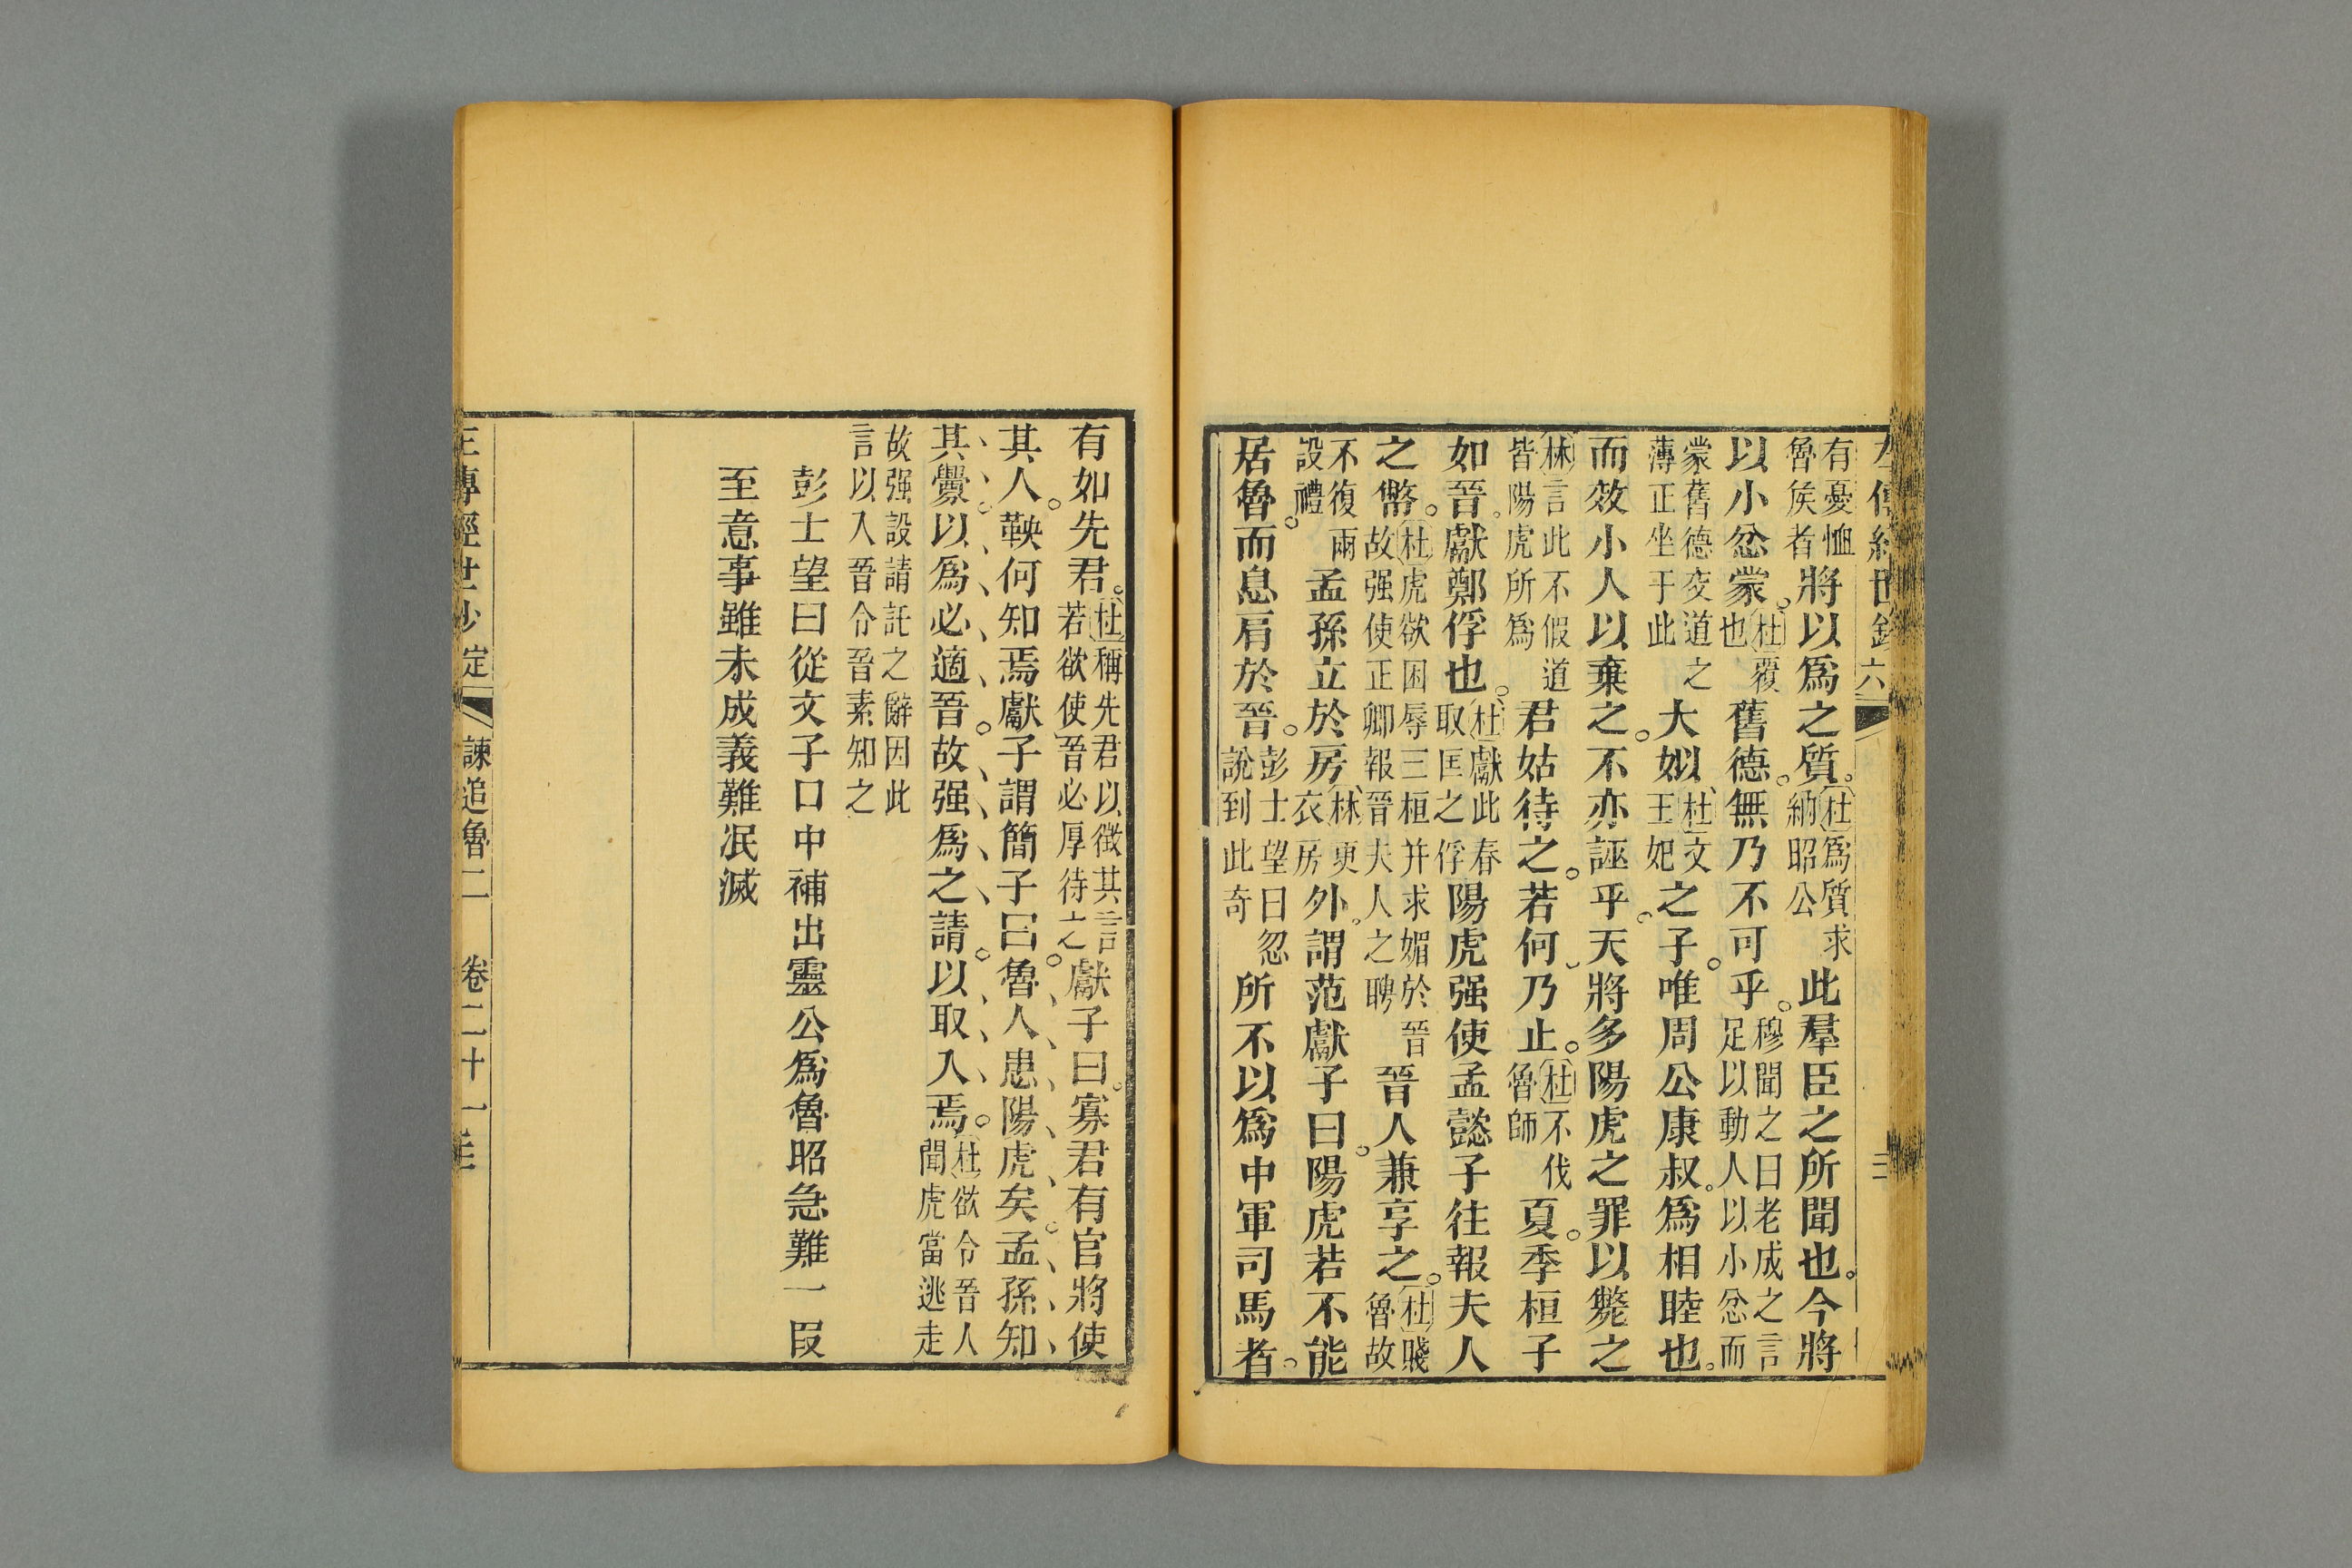 左傳經世鈔 六 三
有憂恤魯矦者將以爲之質杜爲質求納昭公此羣臣之所聞也今將
以小忿蒙杜覆也舊德無乃不可乎穆聞之曰老成之言足以動人以小忿而
蒙舊德変道之薄正坐于此大姒杜文王妃之子唯周公康叔爲相睦也
而效小人以棄之不亦誣乎天將多陽虎之罪以斃之
林言此不假道皆陽虎所爲君姑待之若何乃止杜不伐魯師夏季桓子
如晉獻鄭俘也杜獻此春取匡之俘陽虎强使孟懿子徃報夫人
之幣杜虎欲困辱三桓并求媚於晉故强使正卿報晉夫人之聘晉人兼享之杜賤魯故
不復兩設禮孟孫立於房林更衣房外謂范獻子曰陽虎若不能
居魯而息肩於晉彭士望曰忽說到此奇所不以爲中軍司馬者
有如先君杜稱先君以徵其言若欲使晉必厚待之獻子曰寡君有官將使
其人鞅何知焉獻子謂簡子曰魯人患陽虎矣孟孫知
其釁以爲必適晉故强爲之請以取入焉杜欲令晉人聞虎當逃走
故强設請託之辭因此言以入晉令晉素知之
彭士望曰從文子口中補出靈公爲魯昭急難一段
至意事雖未成義難泯滅
左傳經世鈔 定 諫追魯二 卷二十一 三